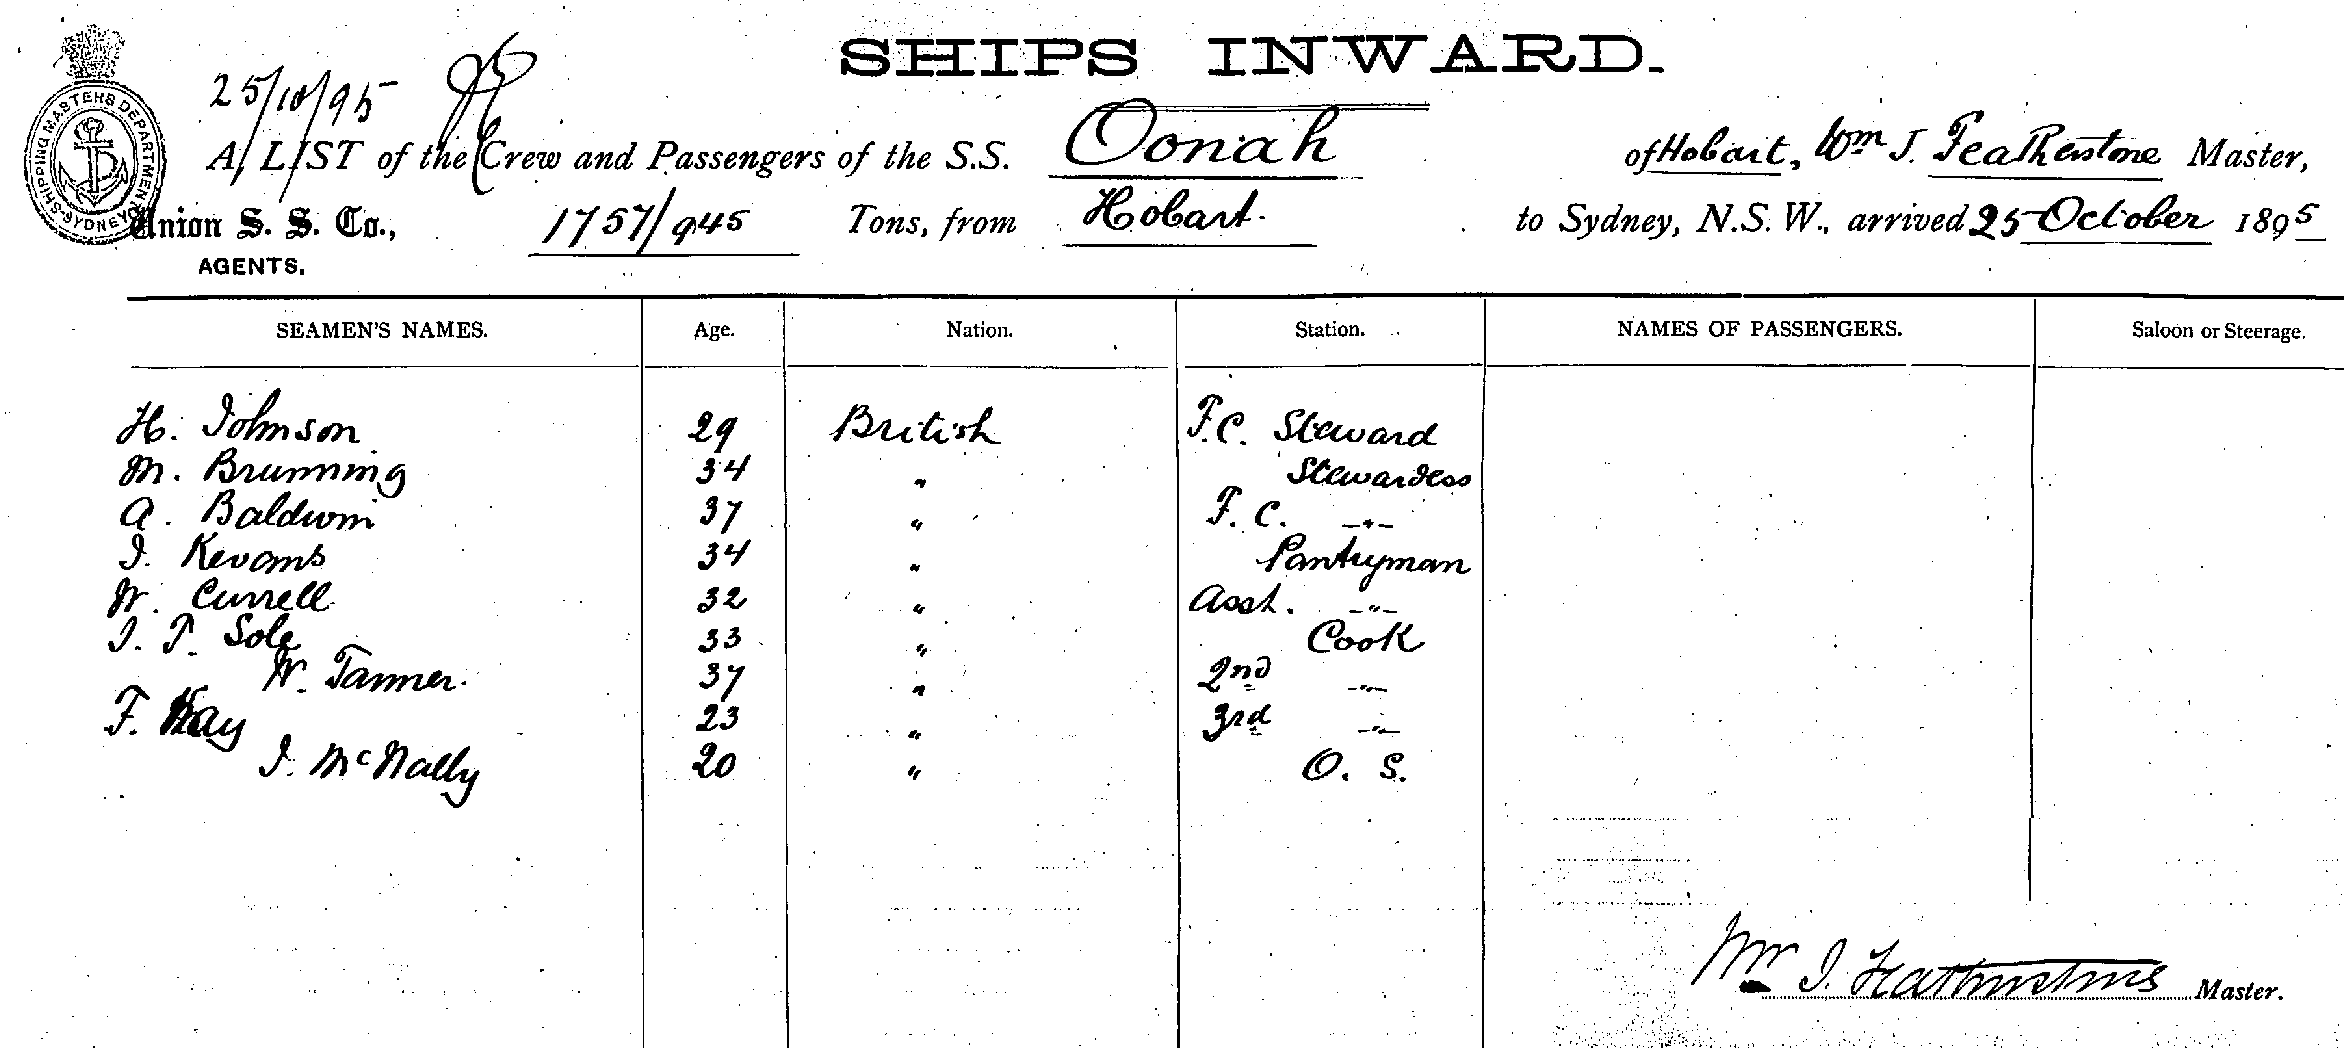 SHIPS INWARD.
25/10/95
SHIPPING MASTERS DEPARTMENT SYDNEY
A LIST of the Crew and Passengers of the S.S. Oonah of Hobart, Wm J. Featherstone Master,
Union S. S. Co., 1757/945 Tons, from Hobart. to Sydney, N.S.W., arrived 25 October 1895
AGENTS.
SEAMEN'S NAMES. Age. Nation. Station. NAMES OF PASSENGERS. Saloon or Steerage.
H. Johnson 29 British F.C. Steward
M. Brunning 34 " Stewardess
A. Baldwin 37 " F.C. -"-
J. Kevans 34 " Pantryman
W. Currell 32 " Asst. -"-
J. T. Sole 33 " Cook
W. Tanner. 37 " 2nd -"-
F. Hay 23 " 3rd -"-
J. McNally 20 " O. S.
Wm J. Featherstone Master.